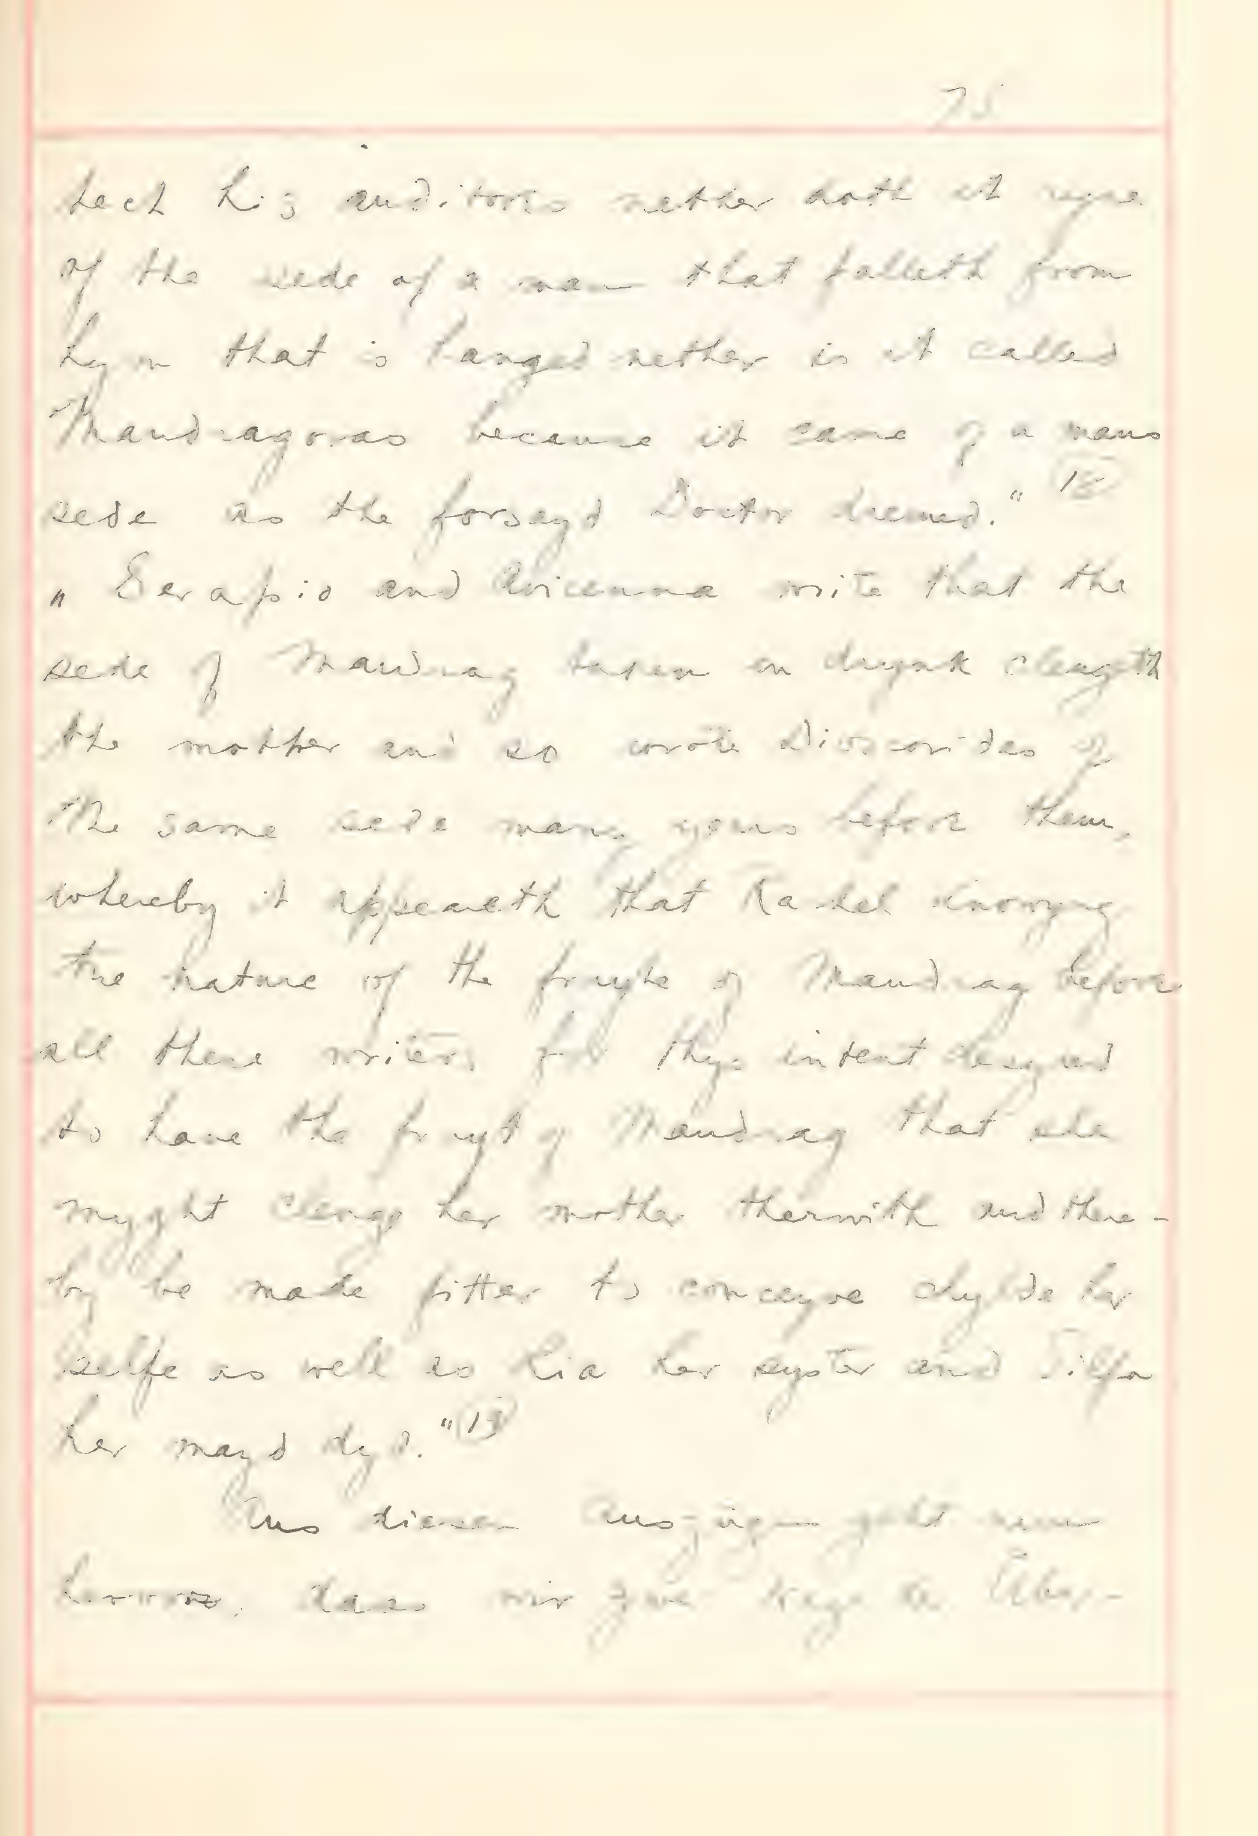 75
tech his auditores nether doth it ryse
of the sede of a man that falleth from
hym that is hanged nether is it called
Mandragoras because it came of a mans
sede as the forsayd Doctor dremed."
"Serapio and Avicenna write that the
sede of Mandrag taken in drynk clengeth
the mother and so wrote Dioscorides of
the same sede many yeres before them,
whereby it appeareth that Rachel knowyng
the nature of the fruyte of Mandrag before
all these writers for thys intent desyred
to have the fruyt of Mandrag that she
myght clenge her mother therwith and there-
by be made fitter to conceyve chylde her
selfe as well as Lia her syster and Silfa
her mayd dyd."
Aus diesen Auszügen geht nun
hervor, dass wir zwei Wege der Über-